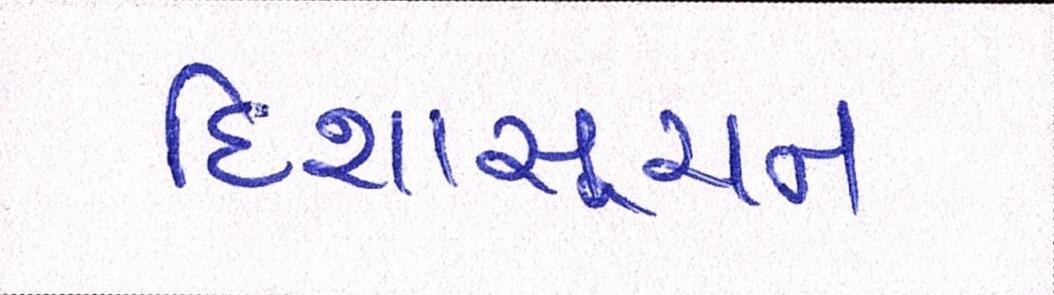 દિશાસૂચન